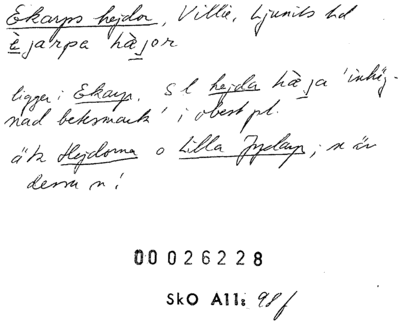 Ekarps hejdor, Villie, Ljunits hd
èjarpa hàjor
ligger i Ekarp. S l hejda hàja 'inhäg-
nad betesmark' i obest pl.
äts Hejdorna o Lilla
00026228
SkO All: 98 f